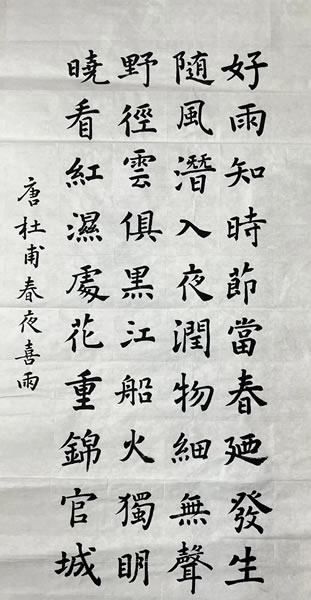 好雨知時節當春廼發生
随風潛入夜潤物細無聲
野徑雲俱黑江船火獨明
曉看紅濕處花重錦官城
唐杜甫春夜喜雨